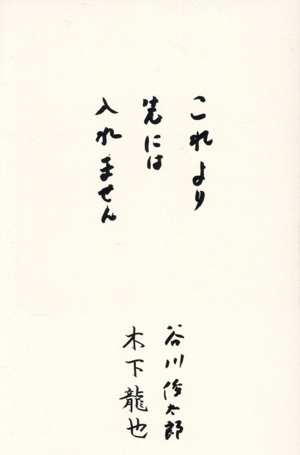 これより
先には
入れません
谷川俊太郎
木下龍也